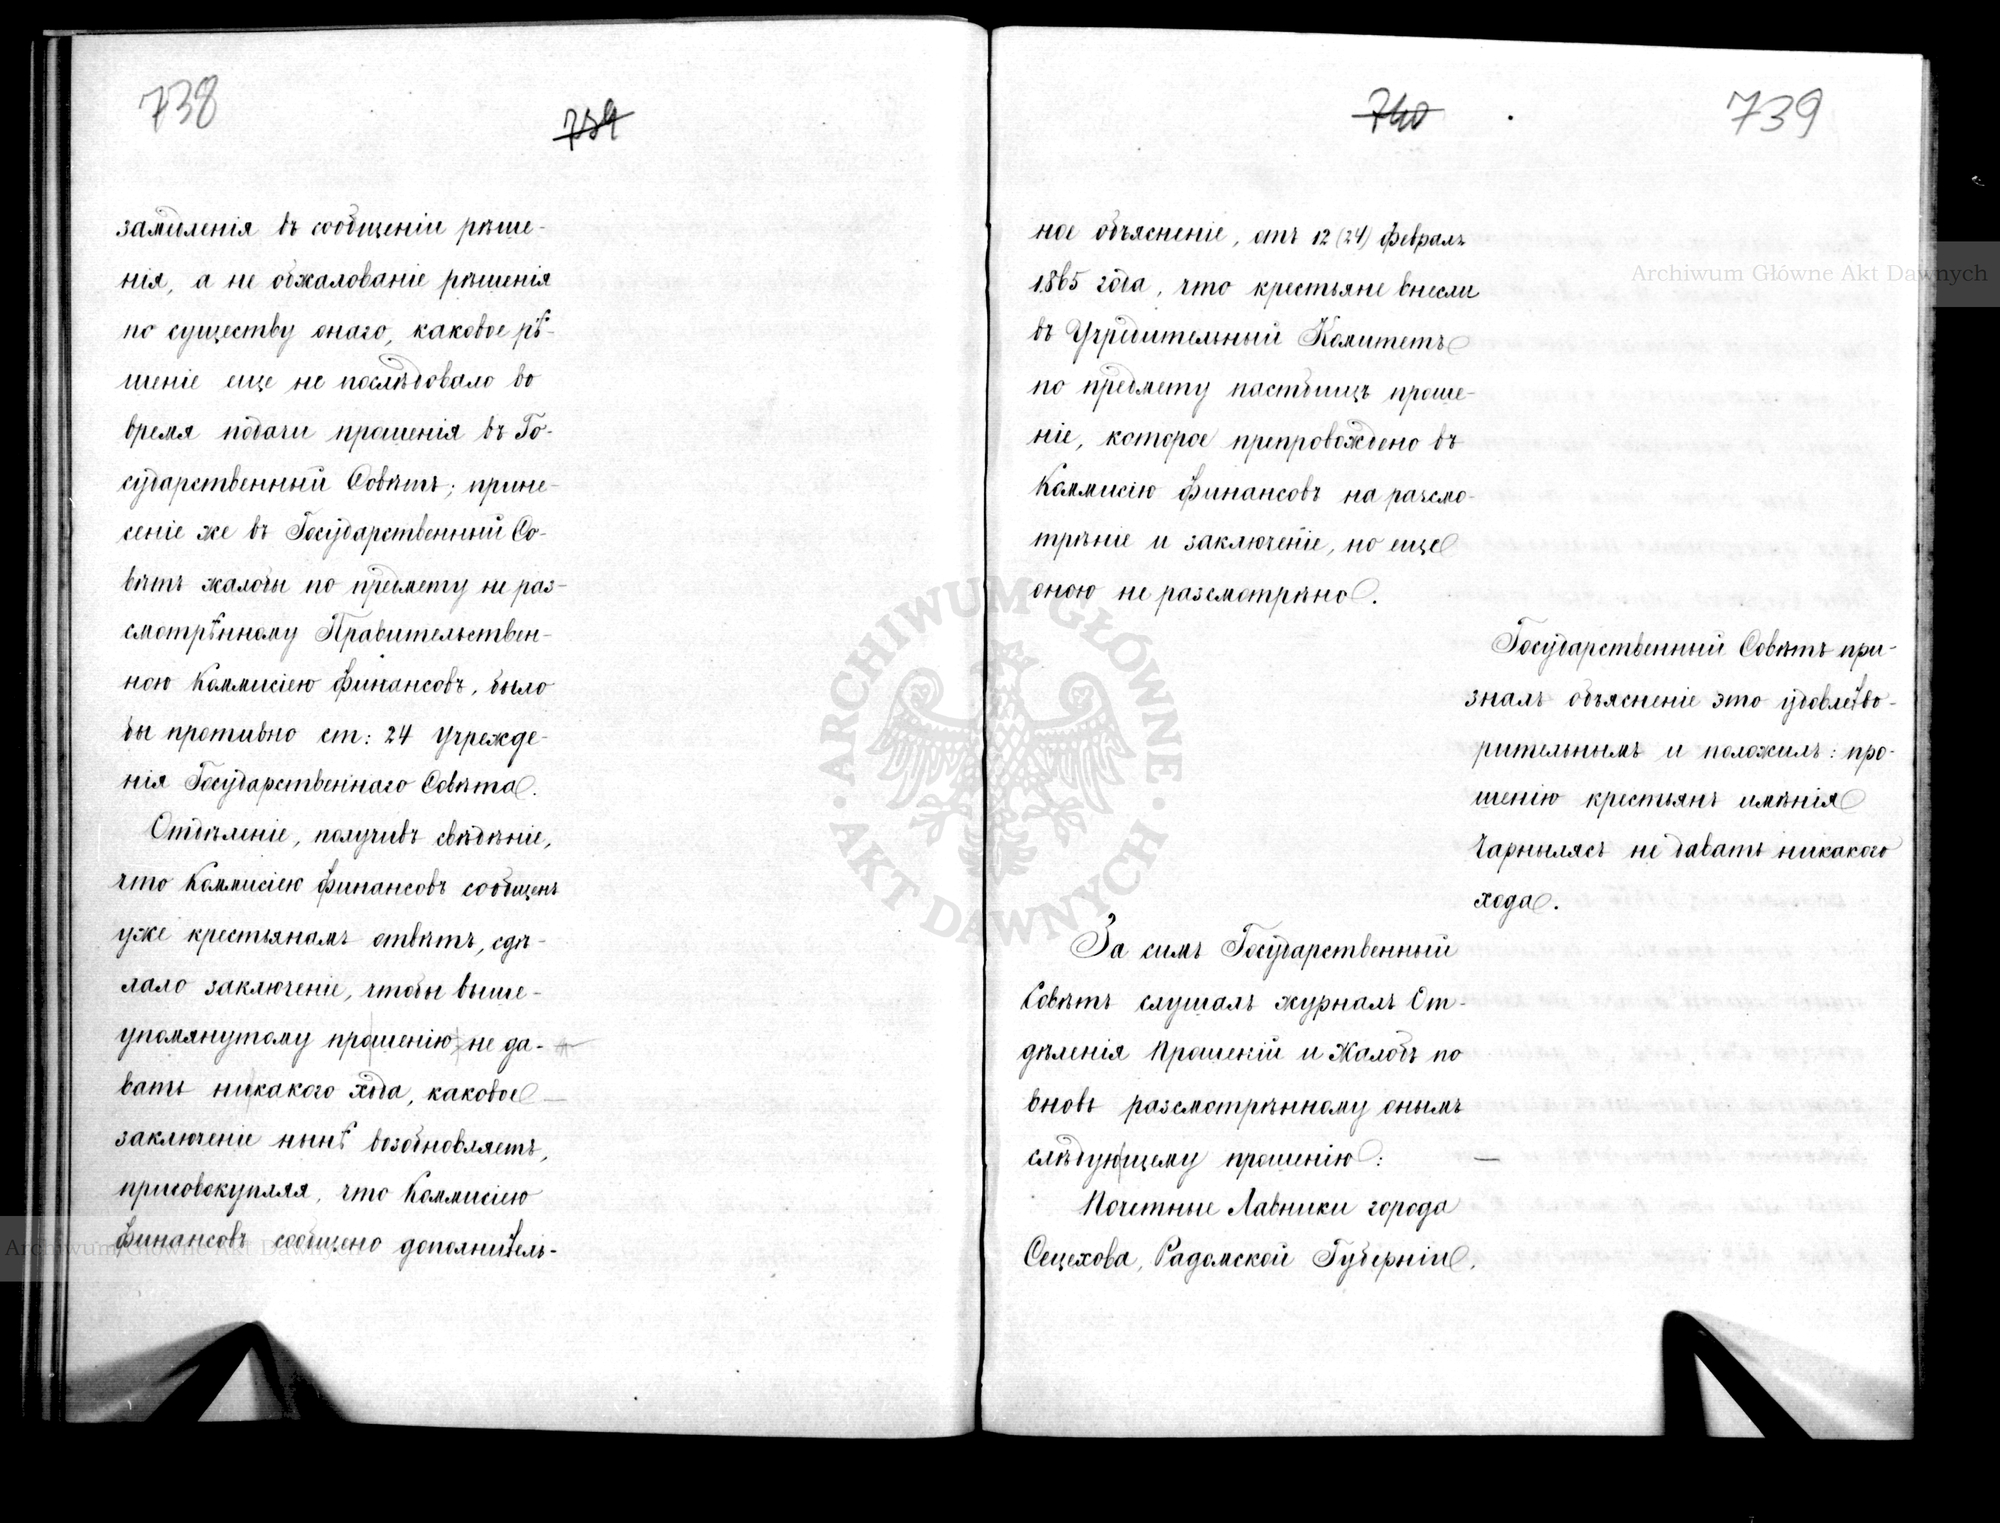 738
739
замѣдленія въ сообщеніи рѣше-
нія, а не обжалованіе рѣшенія
по существу онаго, каковое рѣ-
шеніе еще не послѣдовало во
время подачи прошенія въ Го-
сударственный Совѣтъ; прине-
сеніе же въ Государственный Со-
вѣтъ жалобы по предмету не раз-
смотрѣнному Правительствен-
ною Коммисіею Финансовъ, было
бы противно ст: 24 Учрежде-
нія Государственнаго Совѣта.
Отдѣленіе, получивъ свѣдѣніе,
что Коммисіею Финансовъ сообщенъ
уже крестьянамъ отвѣтъ, сдѣ-
лало заключеніе, чтобы выше-
упомянутому прошенію не да-
вать никакого хода, каковое
заключеніе нынѣ возобновляетъ,
присовокупляя, что Коммисіею
Финансовъ сообщено дополнитель-
740
739
ное объясненіе, отъ 12 (24) Февраля
1865 года, что крестьяне внесли
въ Учредительный Комитетъ
по предмету пастбищъ проше-
ніе, которое препровождено въ
Коммисію Финансовъ на разсмо-
трѣніе и заключеніе, но еще
оною не разсмотрѣно.
Государственный Совѣтъ при-
зналъ объясненіе это удовлетво-
рительнымъ и положилъ: про-
шенію крестьянъ имѣнія
Чарнылясъ не давать никакого
хода.
За симъ Государственный
Совѣтъ слушалъ журналъ От-
дѣленія Прошеній и Жалобъ по
вновь разсмотрѣнному онымъ
слѣдующему прошенію:
Почетные Лавники города
Сецехова, Радомской Губерніи,
Archiwum Główne Akt Dawnych
Archiwum Główne Akt Dawnych
ARCHIWUM GŁÓWNE · AKT DAWNYCH ·